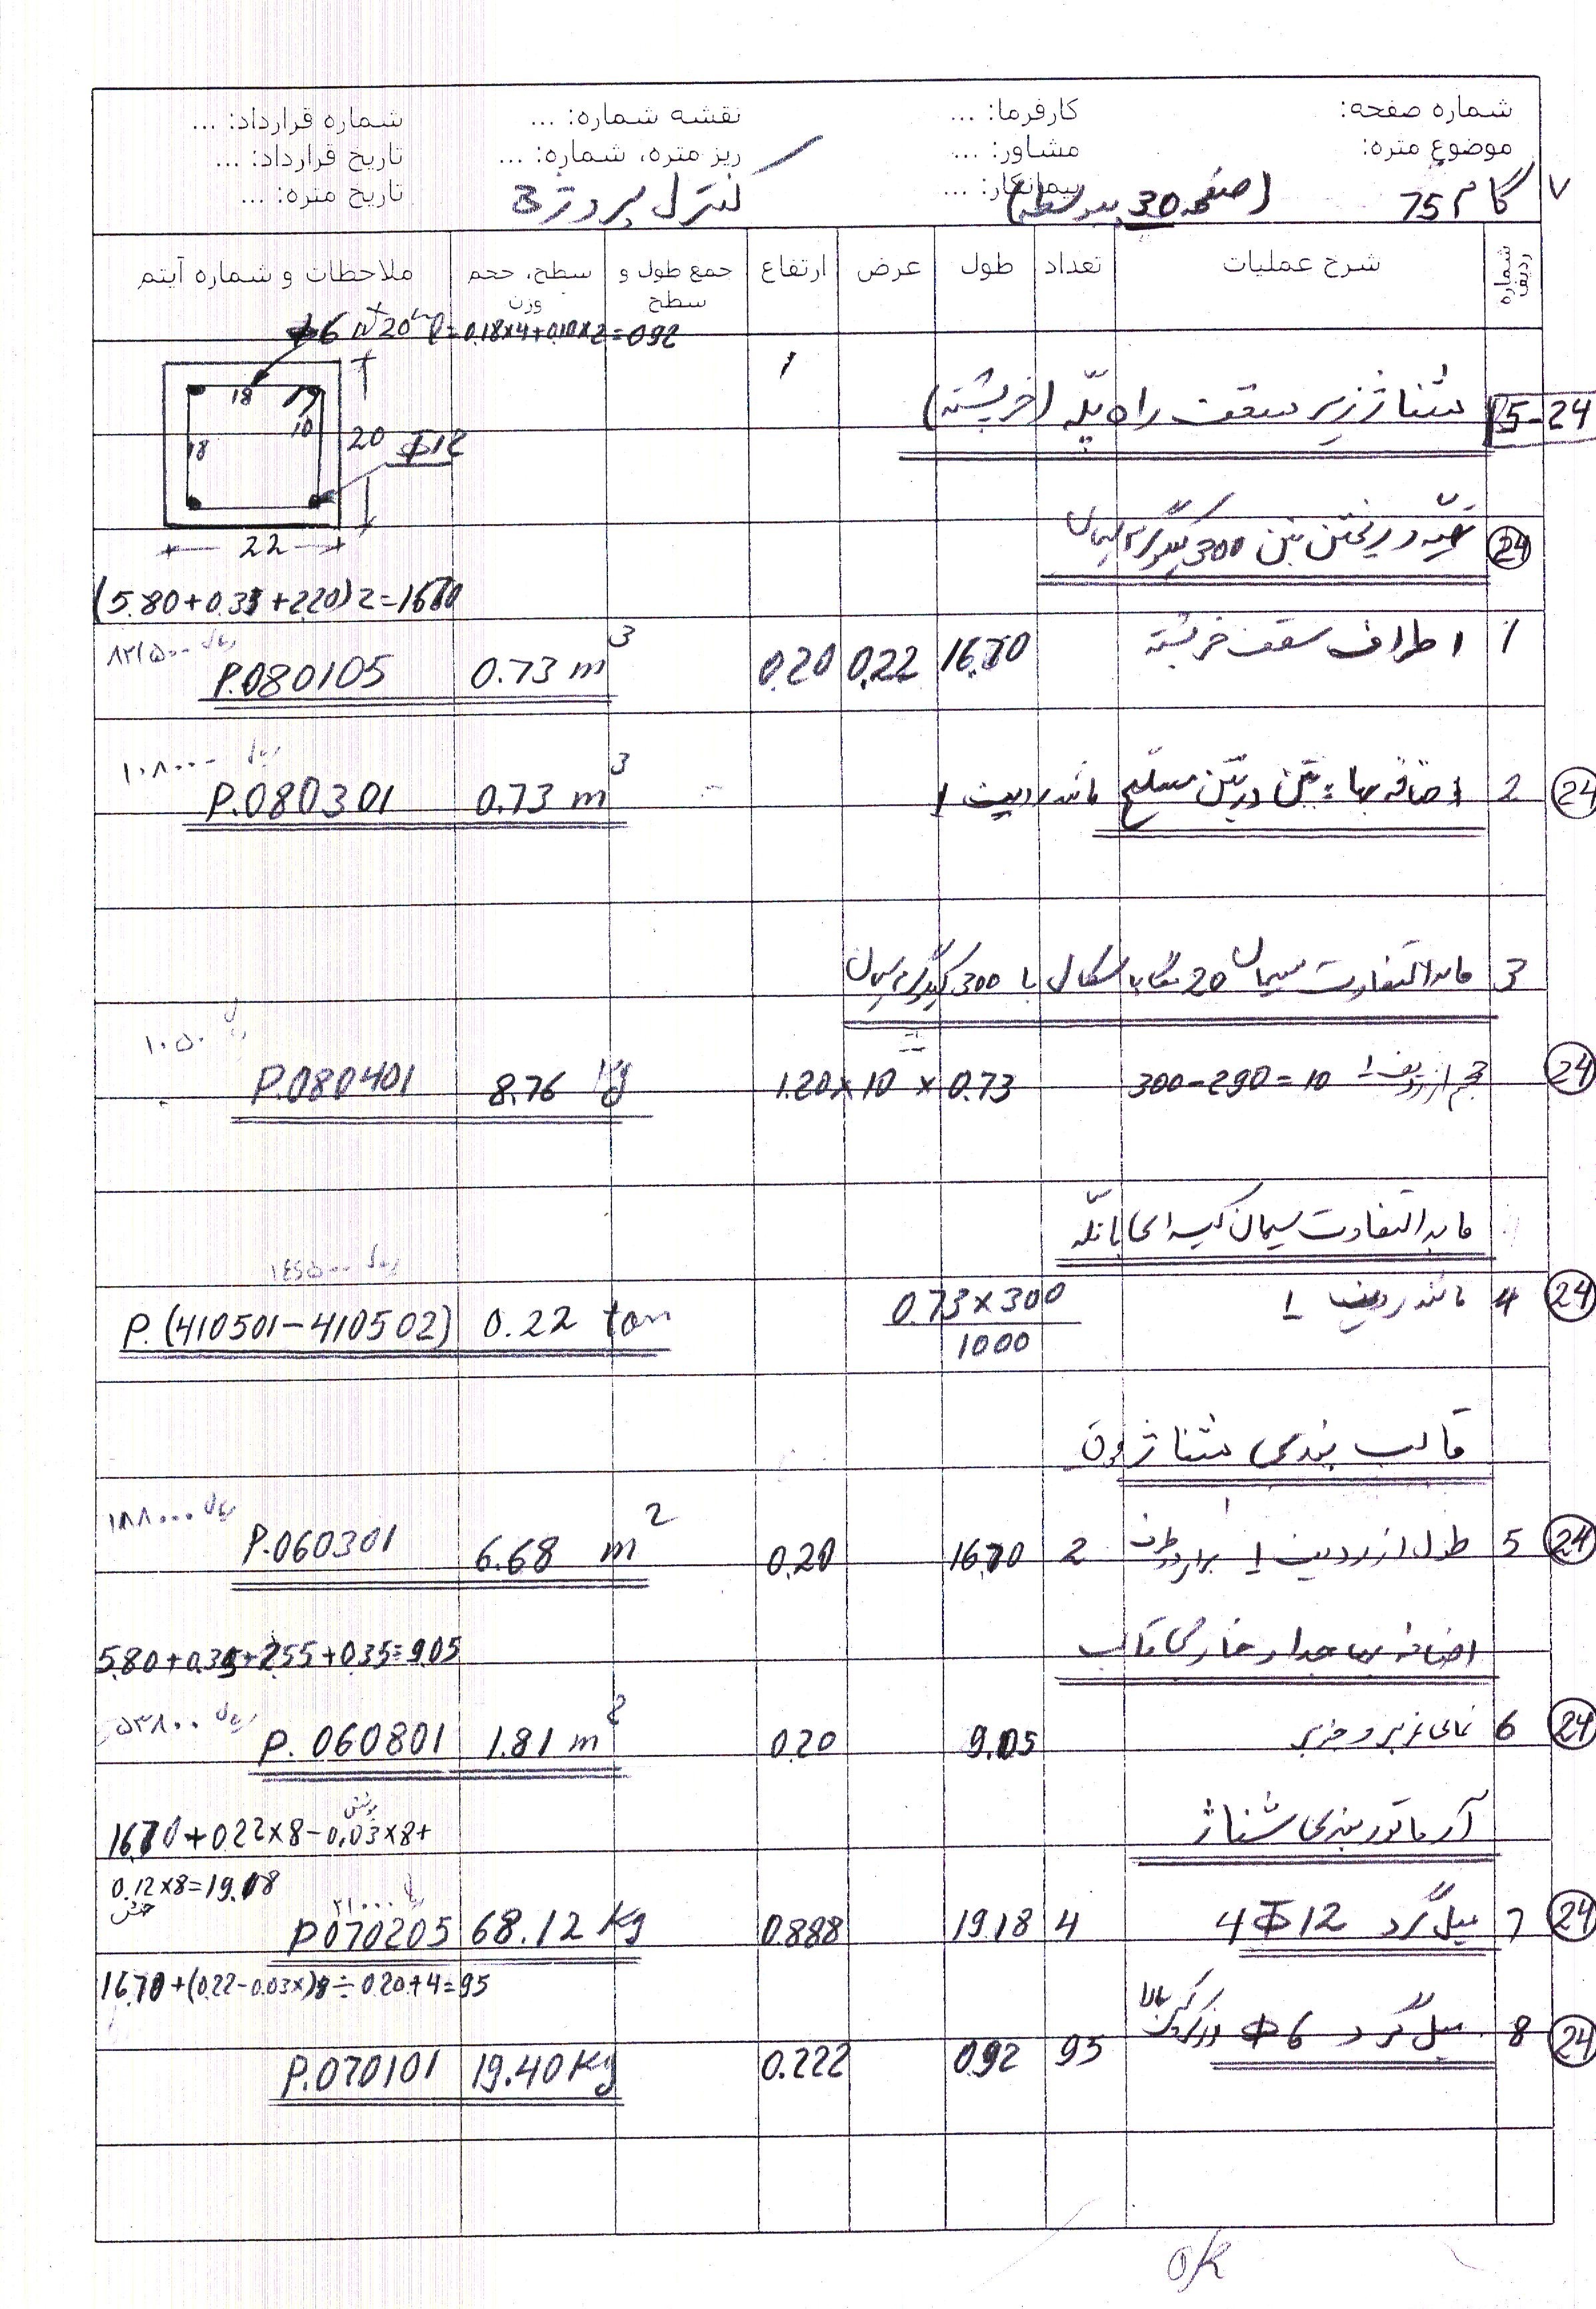 شماره صفحه:
کارفرما: ...
نقشه شماره: ...
شماره قرارداد: ...
موضوع متره:
مشاور: ...
ریز متره، شماره: ...
تاریخ قرارداد: ...
پیمانکار: ...
تاریخ متره: ...
۷ گام 75 (صفحه 30 کنترل پروژه 3
شماره ردیف
شرح عملیات
تعداد
طول
عرض
ارتفاع
جمع طول و سطح
سطح، حجم وزن
ملاحظات و شماره آیتم
Φ6 20 l=0.18x4+0.10x2=0.92
18 10 18 20 Φ12 22
15-24 شناژ زیر سقف راه پله (خرپشته)
24 تهیه و ریختن بتن 300 کیلوگرم سیمان
(5.80+0.35+2.20)2=16.70
1 اطراف سقف خرپشته 16.70 0.22 0.20 0.73 m³ P.080105
ریال ۸۲۱۵۰۰
24 2 اضافه بها بتن در بتن مسلح مانند ردیف 1 0.73 m³ P.080301
ریال ۱۰۸۰۰۰
3 مابه التفاوت سیمان با 300 کیلوگرم سیمان
24 حجم از ردیف 1 300-290=10 0.73 x 10 x 1.20 8.76 Kg P.080401
ریال ۱۰۵۰
مابه التفاوت سیمان کیسه ای با فله
24 4 مانند ردیف 1 0.73x300 / 1000 0.22 ton P.(410501-410502)
قالب بندی شناژ فوق
24 5 طول از ردیف 1 برای دو طرف 2 16.70 0.20 6.68 m² P.060301
ریال ۱۸۸۰۰۰
اضافه بها جدار خارجی قالب
5.80+0.35+2.55+0.35=9.05
24 6 نمای غربی و جنوبی 9.05 0.20 1.81 m² P.060801
ریال ۵۳۸۰۰
آرماتور بندی شناژ
16.70+0.22x8-0.03x8+
پوشش
0.12x8=19.18
خمش
24 7 میل گرد 4Φ12 4 19.18 0.888 68.12 Kg P070205
۲۱۰۰۰
16.70+(0.22-0.03x)8÷0.20+4=95
24 8 میل گرد Φ6 95 0.92 0.222 19.40 Kg P.070101
ok